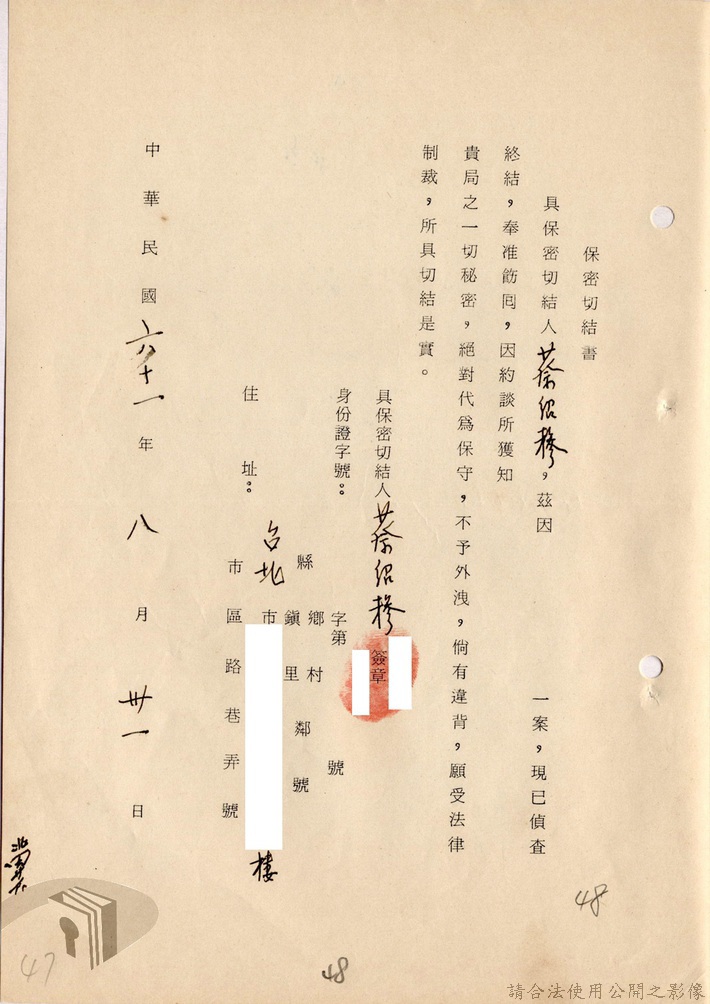 保密切結書
具保密切結人蔡紹
，茲因 一案，現已偵查
終結，奉准飭囘，因約談所獲知
貴局之一切秘密，絕對代為保守，不予外洩，倘有違背，願受法律
制裁，所具切結是實。
具保密切結人蔡紹
簽章
身份證字號： 字第 號
住址：台北 縣市 鄉鎮市區 村里 鄰 路 巷 弄 號 樓
中華民國六十一年八月卅一日
48
47
48
請合法使用公開之影像